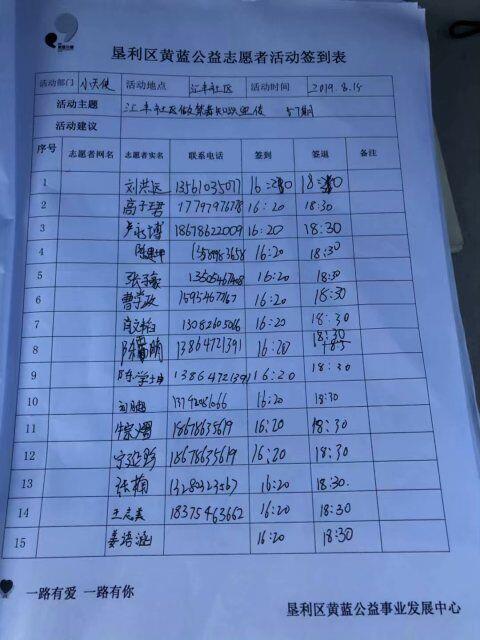 垦利区黄蓝公益志愿者活动签到表
活动部门 小天使 活动地点 汇丰社区 活动时间 2019.8.15
活动主题 汇丰社区做禁毒知识宣传 57期
活动建议
序号 志愿者网名 志愿者实名 联系电话 签到 签退 备注
1 刘洪远 13561035077 16:20 18:30
2 高子珺 17797797678 16:20 18:30
3 18678622009 16:20 18:30
4 16:20 18:30
5 张子豪 16:20 18:30
6 曹学政 16:20 18:30
7 16:20 18:30
8 13864721391 16:20 18:30
9 陈学士 13864721391 16:20 18:30
10 16:20 18:30
11 18678635619 16:20 18:30
12 18678635619 16:20 18:30
13 张楠 13280323567 16:20 18:30
14 王志美 18375463662 16:20 18:30
15 姜语涵 16:20 18:30
一路有爱 一路有你
垦利区黄蓝公益事业发展中心